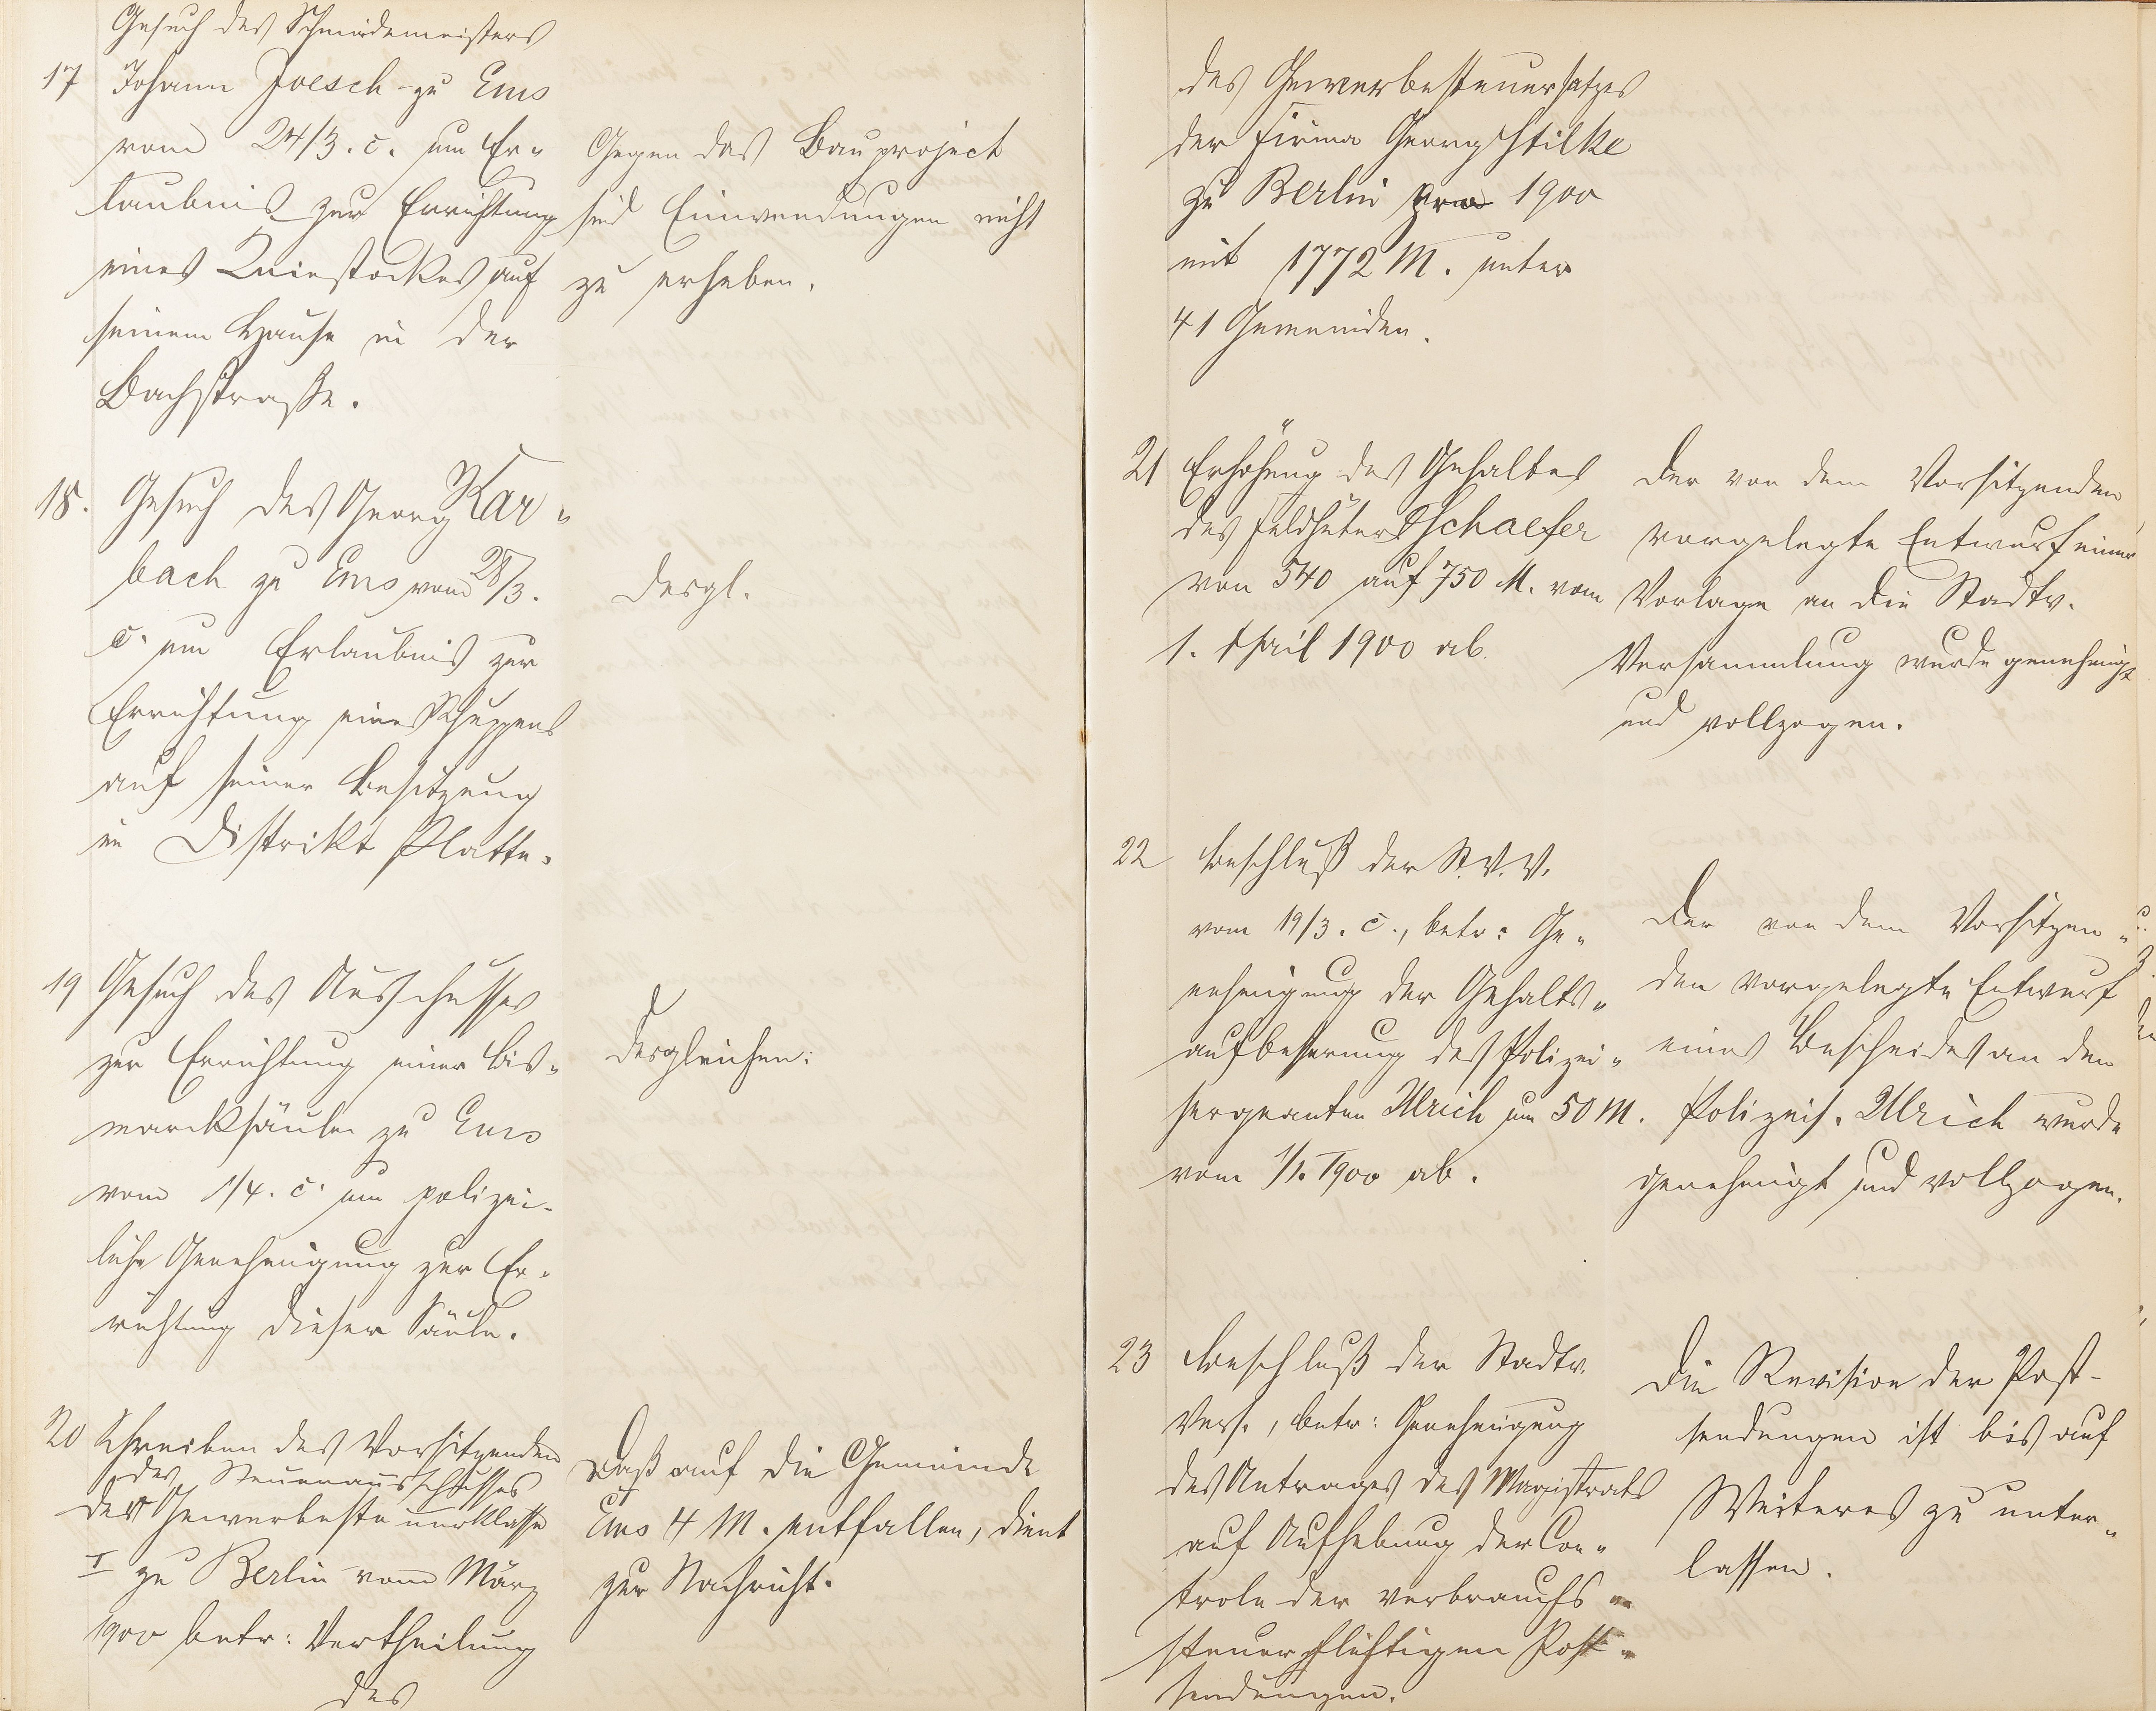 Gesuch des Schmiedemeisters
17 Johann Joesch zu Ems
vom 24/3. c. um Er-
laubnis zur Errichtung
eines Kniestockes auf
seinem Hause in der
Bachstrasse.
Gegen das Bauproject
sind Einwendungen nicht
zu erheben.
18. Gesuch des Georg Kar-
bach zu Ems vom 28/3.
c. um Erlaubnis zur
Errichtung eines Schuppens
auf seiner Besitzung
im Distrikt Platte.
desgl.
19 Gesuch des Ausschusses
zur Errichtung einer Bis-
marcksäule zu Ems
vom 1/4. c. um polizei-
liche Genehmigung zur Er-
richtung dieser Säule.
desgleichen.
20 Schreiben des Vorsitzenden
des Steuerausschusses
der Gewerbesteuerklasse
I zu Berlin vom März
1900 betr: Vertheilung
des
Daß auf die Gemeinde
Ems 4 M. entfallen, dient
zur Nachricht.
des Gewerbesteuersatzes
der Firma Georg Stilke
zu Berlin pro 1900
mit 1772 M. unter
41 Gemeinden.
21 Erhöhung des Gehaltes
des Feldhüters Schaefer
von 540 auf 750 M. vom
1. April 1900 ab.
Der von dem Vorsitzenden
vorgelegte Entwurf einer
Vorlage an die Stadtv.
Versammlung wurde genehmigt
und vollzogen.
22 Beschluß der St. V. V.
vom 19/3. c., betr: Ge-
nehmigung der Gehalts-
aufbesserung des Polizei-
sergeanten Ulrich um 50 M.
vom 1/1. 1900 ab.
Der von dem Vorsitzen-
den vorgelegte Entwurf
eines Bescheides an den
Polizeis. Ulrich wurde
genehmigt und vollzogen.
23 Beschluß der Stadtv.
Vers., betr: Genehmigung
des Antrages des Magistrats
auf Aufhebung der Con-
trole der verbrauchs-
steuerpflichtigen Post-
sendungen.
Die Revision der Post-
sendungen ist bis auf
Weiteres zu unter-
lassen.